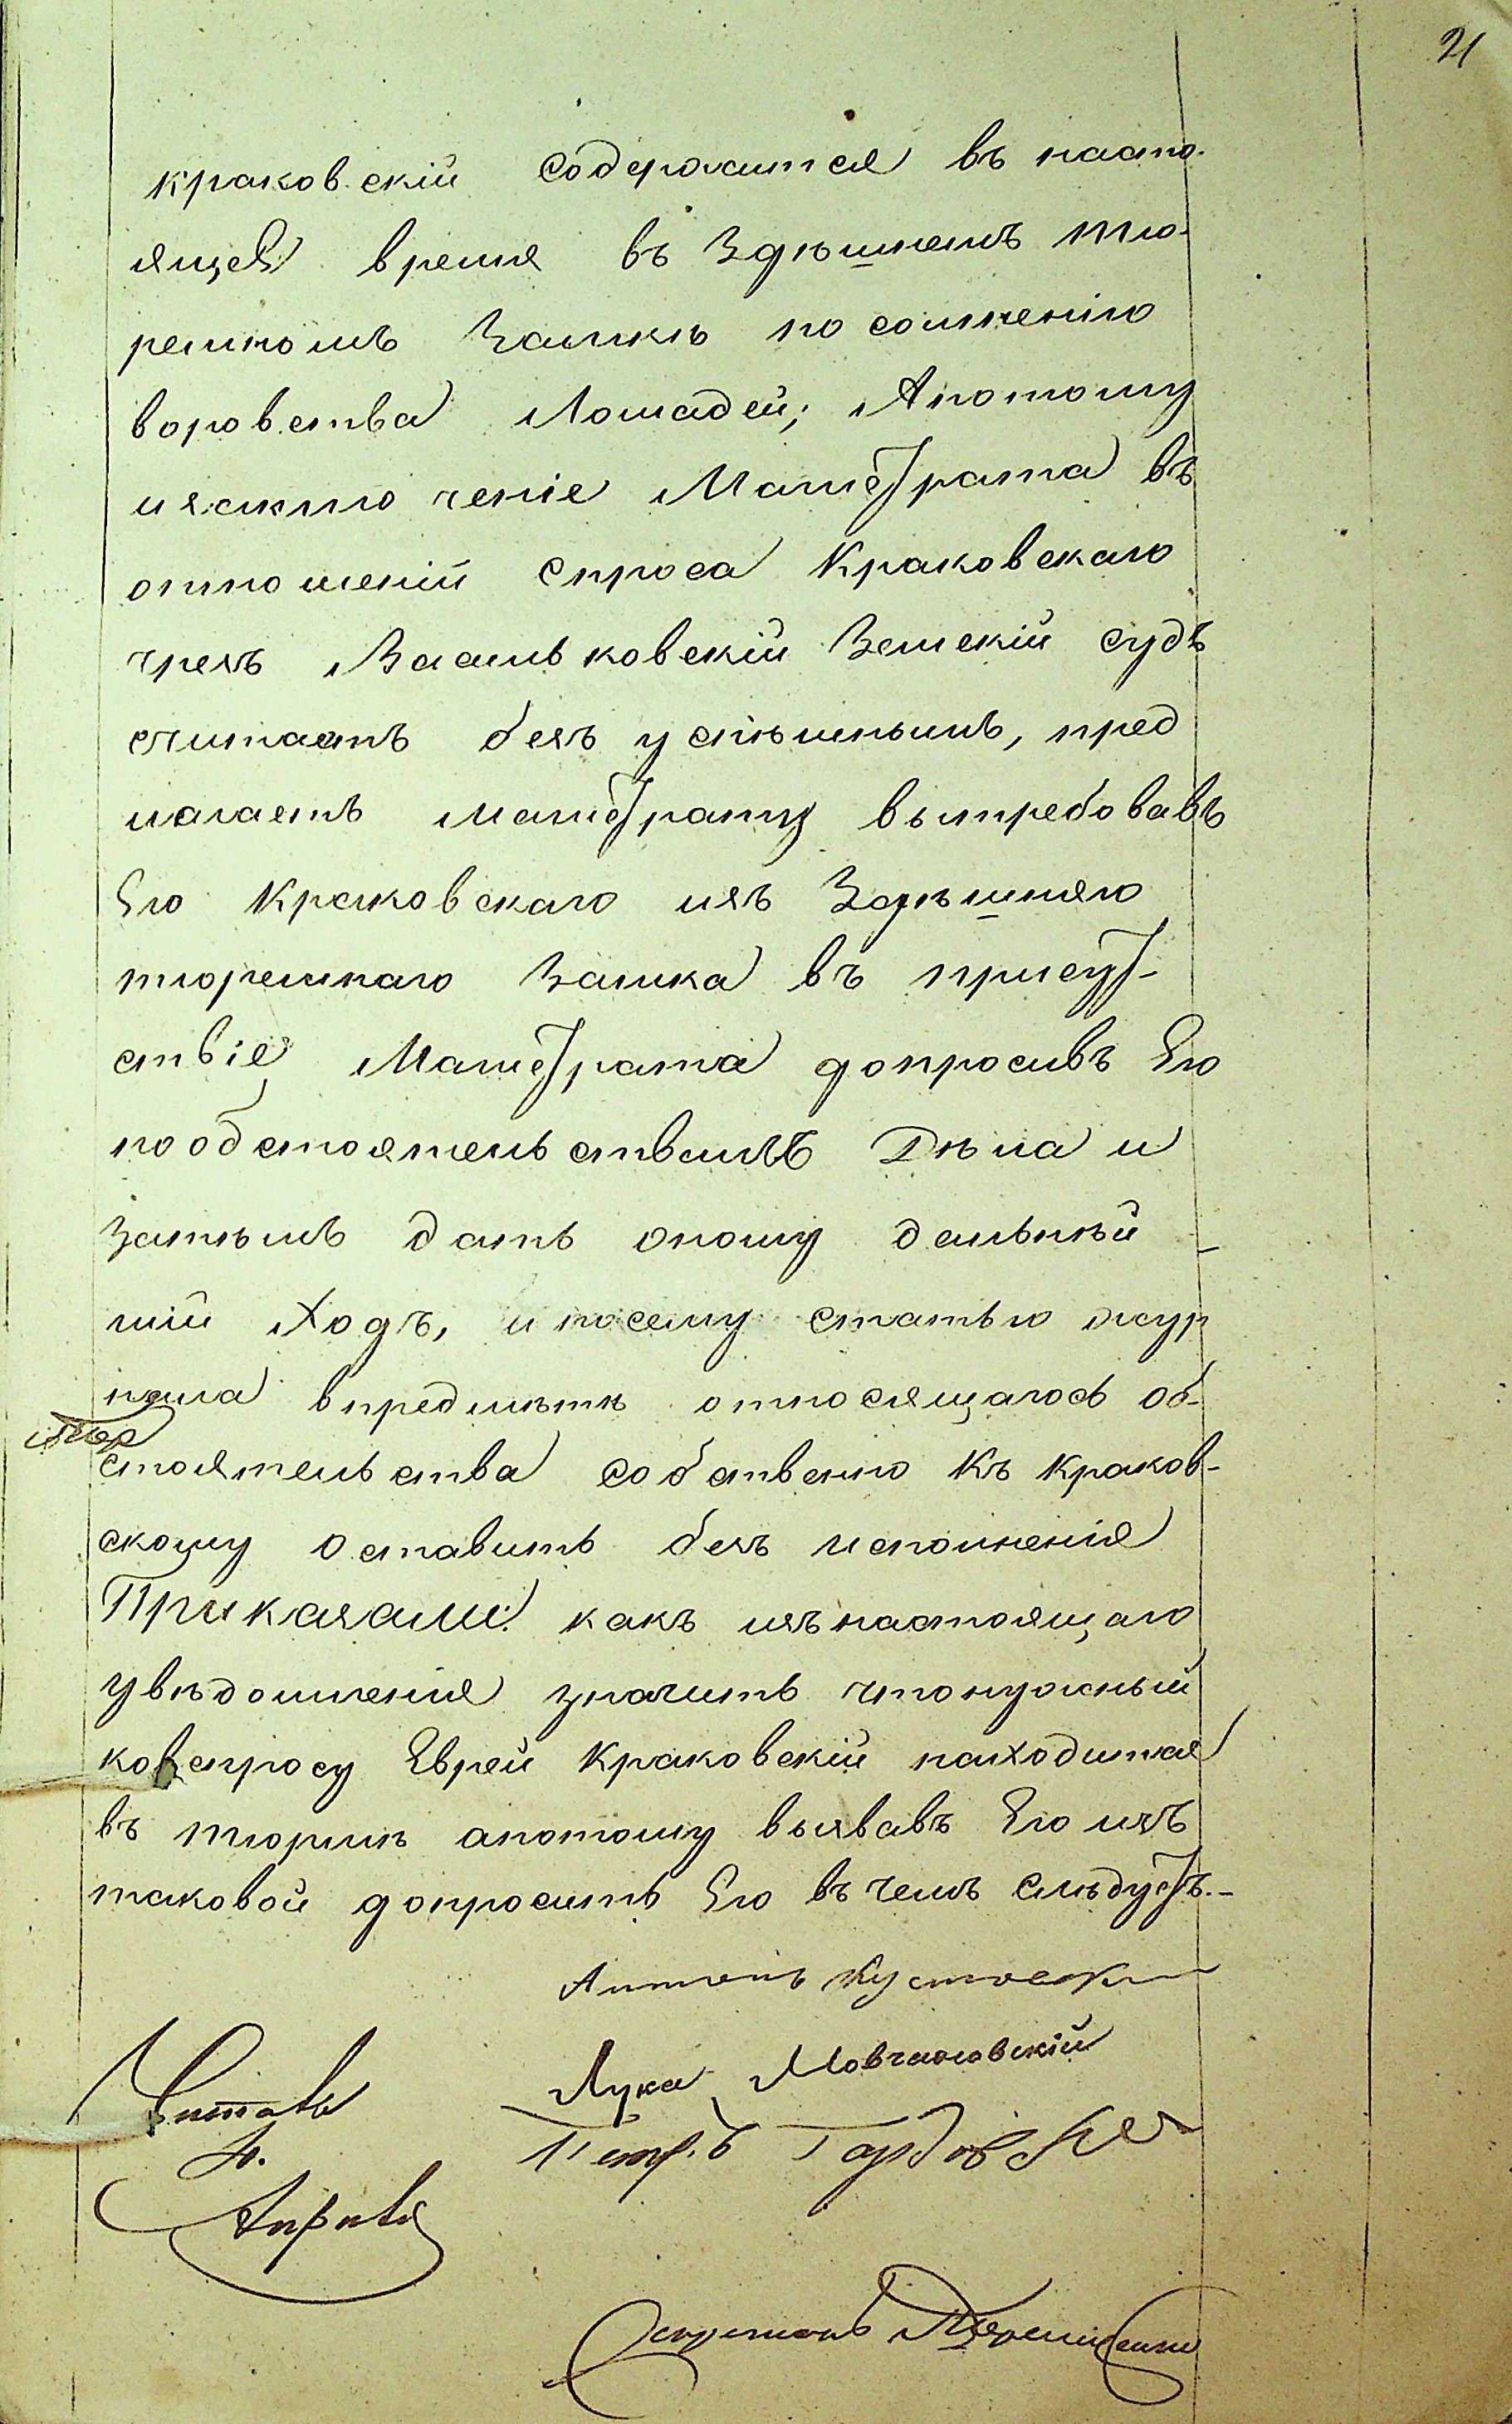 21
краковскій содержится въ насто-
ящей время въ Здѣшнемъ тю-
ремномъ Замкѣ по сомненію
воровства Лошадей; Апотому
изключеніе Магистрата въ
отношеній спроса Краковскаго
чрезъ Васильковскій Земскій судъ
считаетъ безъ успѣшнымъ, пред
лагаетъ магистрату вытребовавъ
Его Краковскаго изъ Здѣшняго
тюремнаго Замка въ присут-
ствіе Магистрата допросивъ Его
пообстоятельствамъ Дѣла и
затѣмъ дать оному дальнѣй-
шій Ходъ, и посему статью жур
нала впредмѣтѣ относящагось об-
стоятельства собственно Къ Краков-
скому оставить безъ исполненія
Приказали: какъ изънастоящаго
увѣдомленія значитъ чтонужный
коспросу Еврей Краковскій находится
въ тюрмѣ апотому вызвавъ Его изъ
таковой допросить Его въ чемъ слѣдуетъ.-
Антонъ
Лука Мовчановскій
Читалъ
Петръ